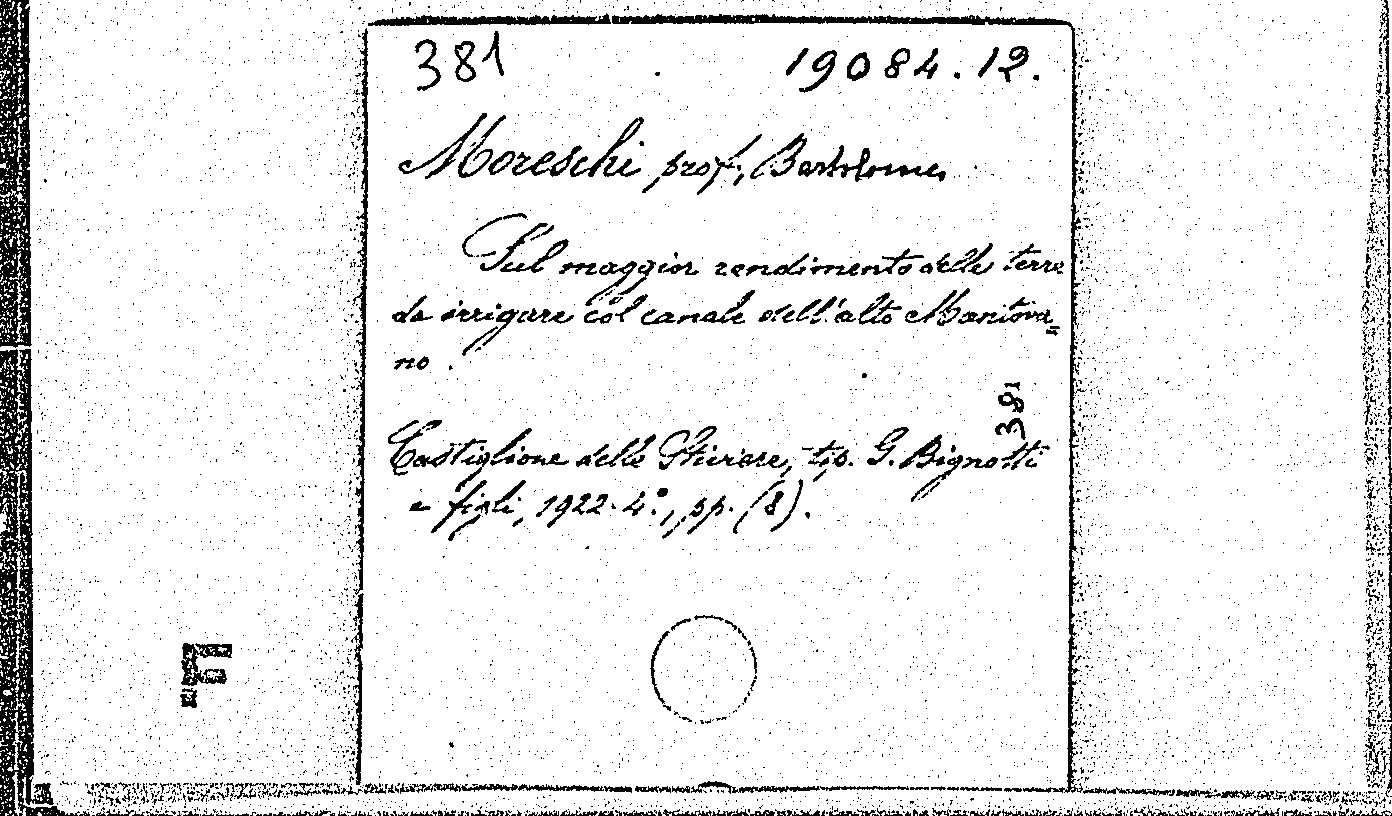 381 19084.12.
Moreschi prof. Bartolomeo
Sul maggior rendimento delle terre
da irrigare col canale dell'alto Mantova=
no.
381
Castiglione delle Stiviere, tip. G. Bignotti
e figli, 1922. 4°, pp. (8).
F